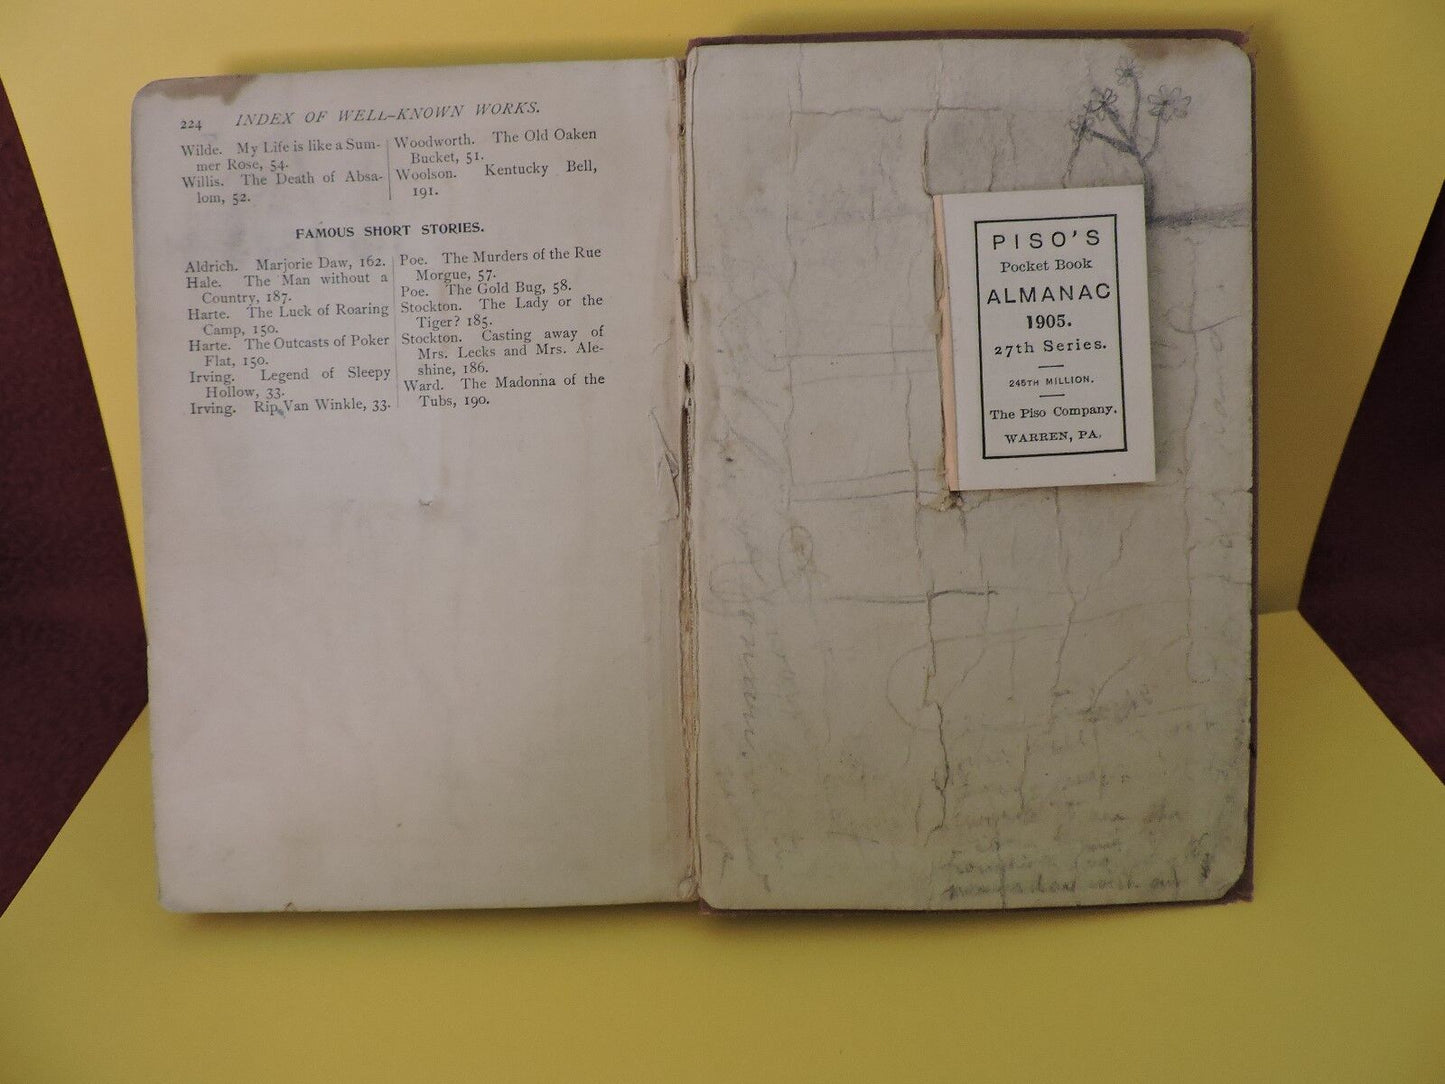 224 INDEX OF WELL-KNOWN WORKS.
Wilde. My Life is like a Sum-
mer Rose, 54.
Willis. The Death of Absa-
lom, 52.
Woodworth. The Old Oaken
Bucket, 51.
Woolson. Kentucky Bell,
191.
FAMOUS SHORT STORIES.
Aldrich. Marjorie Daw, 162.
Hale. The Man without a
Country, 187.
Harte. The Luck of Roaring
Camp, 150.
Harte. The Outcasts of Poker
Flat, 150.
Irving. Legend of Sleepy
Hollow, 33.
Irving. Rip Van Winkle, 33.
Poe. The Murders of the Rue
Morgue, 57.
Poe. The Gold Bug, 58.
Stockton. The Lady or the
Tiger? 185.
Stockton. Casting away of
Mrs. Lecks and Mrs. Ale-
shine, 186.
Ward. The Madonna of the
Tubs, 190.
PISO'S
Pocket Book
ALMANAC
1905.
27th Series.
245TH MILLION.
The Piso Company.
WARREN, PA.